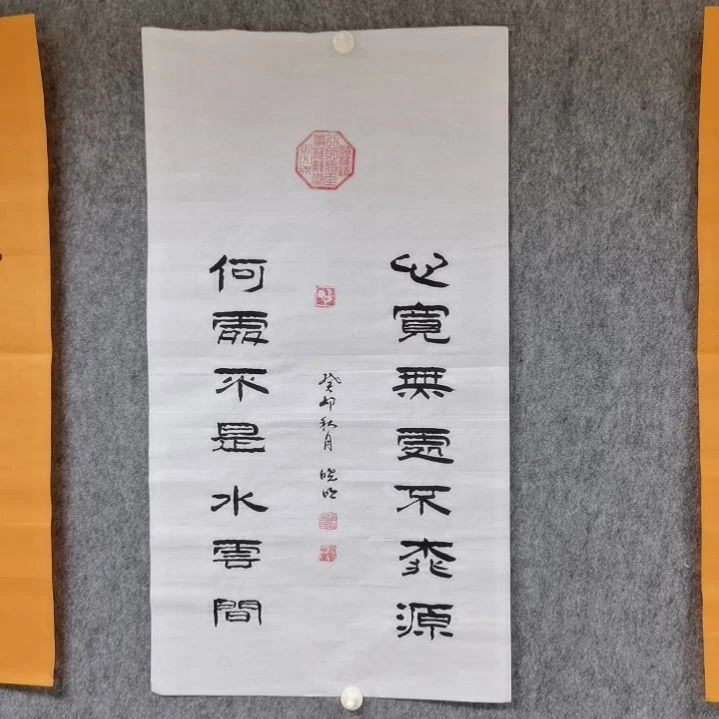 心寬無處不桃源
何處不是水雲間
癸卯秋月